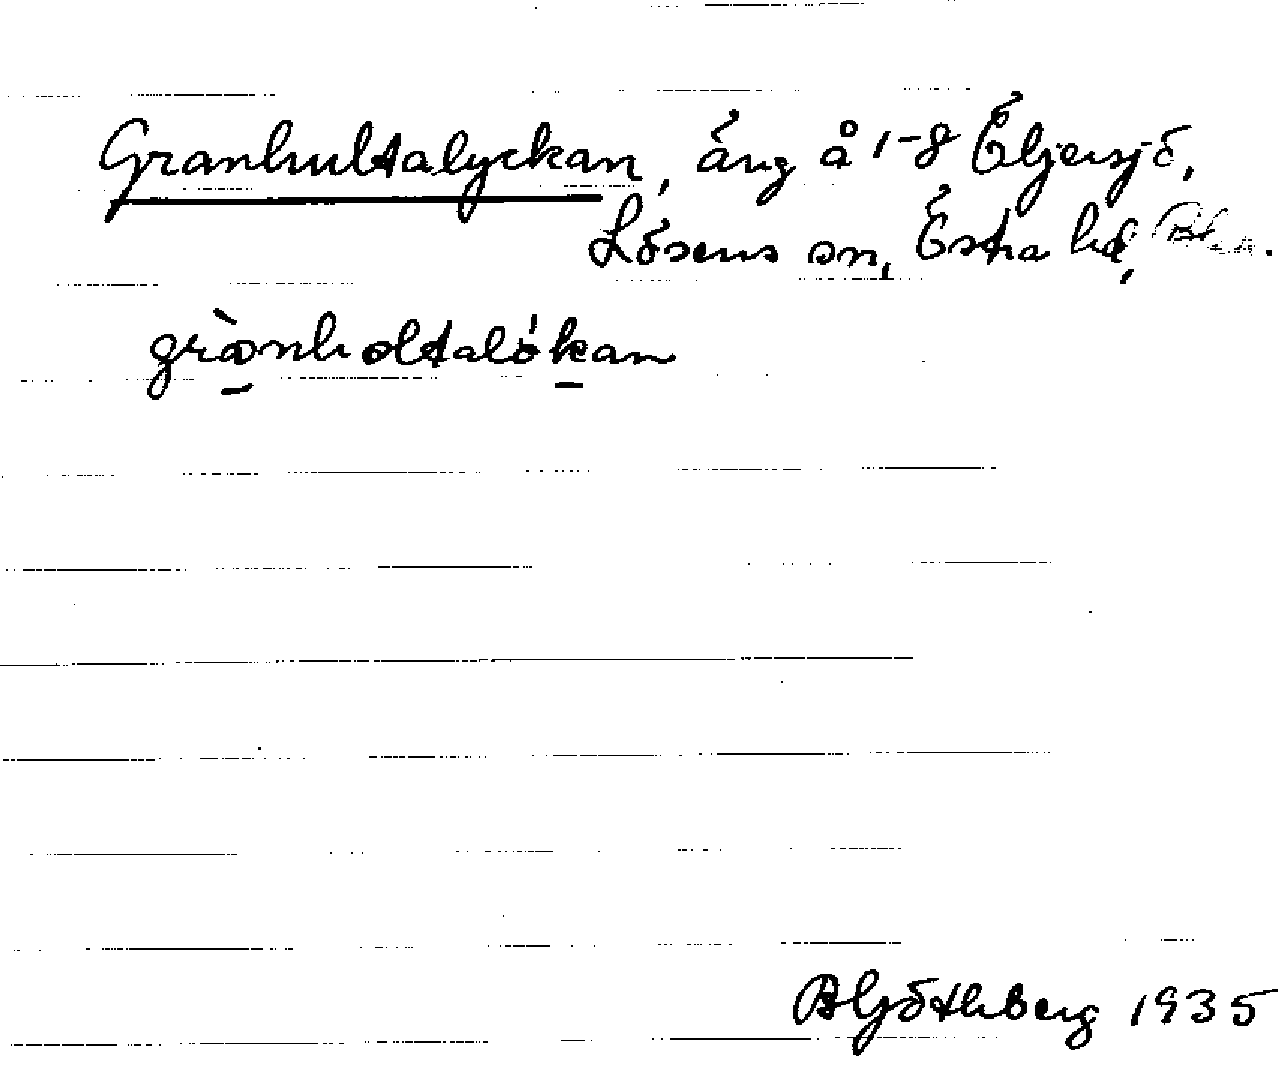 Granhultalyckan, äng å 1-8 Öljersjö,
Lösens sn, Östra hd, Blek.
grànholtaló'kan
B Ljöthberg 1935